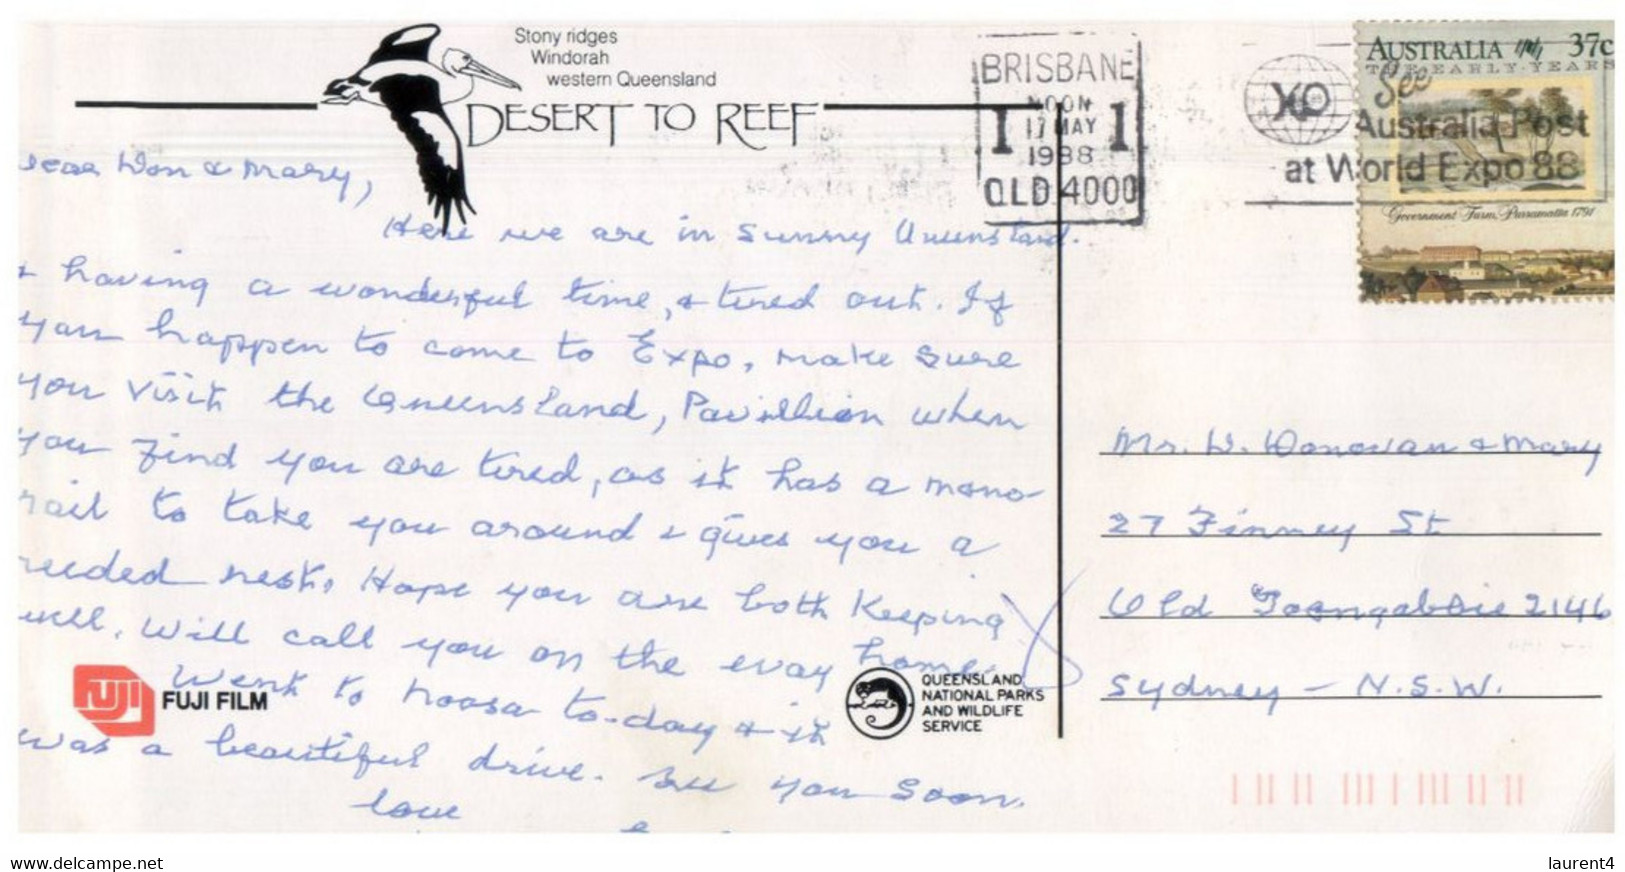 Stony ridges
Windorah
western Queensland
DESERT TO REEF
BRISBANE
NOON
1 17 MAY 1
1988
QLD.4000
See
Australia Post
at World Expo 88
AUSTRALIA 37c
THE EARLY YEARS
Government Farm, Parramatta 1791
Dear Don & Mary,
Here we are in Sunny Queensland.
& having a wonderful time, & tired out. If
you happen to come to Expo, make sure
you visit the Queensland, Pavillion when
you find you are tired, as it has a mono-
rail to take you around & gives you a
needed rest. Hope you are both keeping
well. Will call you on the way home.
Went to Noosa to-day & it
was a beautiful drive. See you soon.
love
FUJI
FUJI FILM
QUEENSLAND
NATIONAL PARKS
AND WILDLIFE
SERVICE
Mr. W. Donovan & Mary
27 Finney St
Old Toongabbie 2146
Sydney - N.S.W.
www.delcampe.net
laurent4